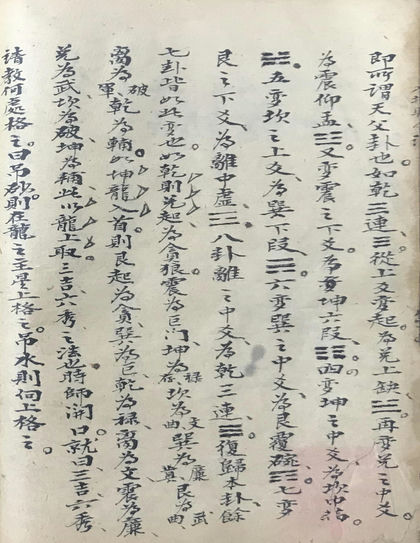 即所謂天父卦也如乾三連☰從上爻變起為兌上缺☱再變兌之中爻
為震仰盂☳又變震之下爻為坤六段☷四變坤之中爻為坎中滿
☵五變坎之上爻為巽下段☴六變巽之中爻為艮覆碗☶七變
艮之下爻為離中虛☲八卦離之中爻為乾三連☰復歸本卦餘
七卦皆如此變也如乾則兌起為貪狼震為巨門坤為祿存坎為文曲巽為廉貞艮為武曲
离為破軍乾為輔如坤龍入首則艮起為貪巽為巨乾為祿离為文震為廉
兌為武坎為破坤為輔此以龍上取三吉六秀之法也時師開口就曰三吉六秀
請教何處格之曰吊砂則在龍之主星上格之吊水則向上格之